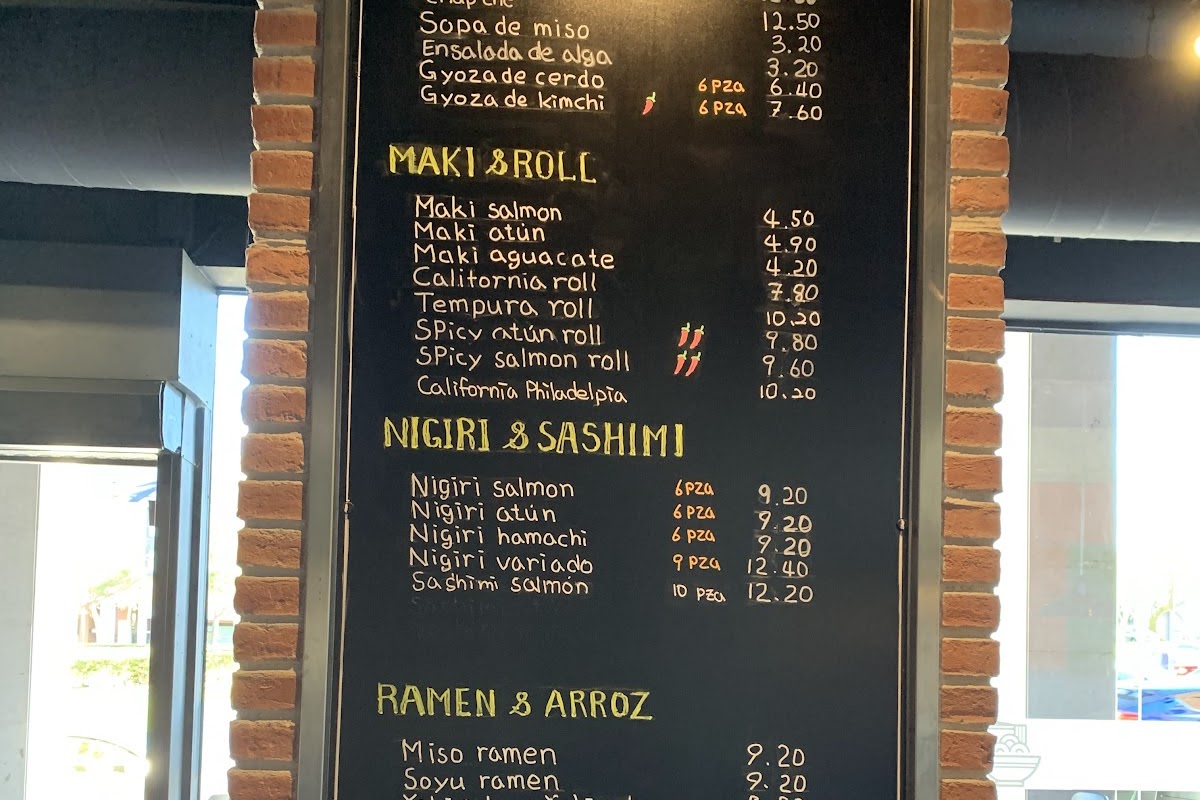 12.50
Sopa de miso 3.20
Ensalada de alga 3.20
Gyoza de cerdo 6 pza 6.40
Gyoza de kimchi 6 pza 7.60
MAKI & ROLL
Maki salmon 4.50
Maki atún 4.90
Maki aguacate 4.20
California roll 7.80
Tempura roll 10.20
SPicy atún roll 9.80
SPicy salmon roll 9.60
California Philadelpia 10.20
NIGIRI & SASHIMI
Nigiri salmon 6 pza 9.20
Nigiri atún 6 pza 9.20
Nigiri hamachi 6 pza 9.20
Nigiri variado 9 pza 12.40
Sashimi salmón 10 pza 12.20
RAMEN & ARROZ
Miso ramen 9.20
Soyu ramen 9.20